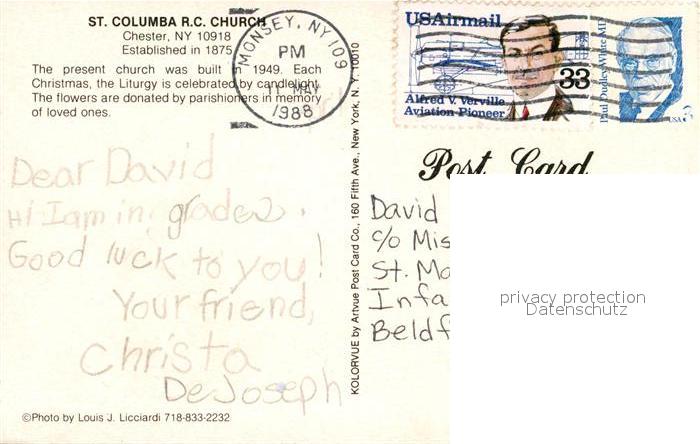 ST. COLUMBA R.C. CHURCH
Chester, NY 10918
Established in 1875
The present church was built in 1949. Each
Christmas, the Liturgy is celebrated by candlelight.
The flowers are donated by parishioners in memory
of loved ones.
MONSEY, NY 109
PM
11 MAY
1988
Dear David
Hi I am in grade 2.
Good luck to you!
Your friend,
Christa
DeJoseph
©Photo by Louis J. Licciardi 718-833-2232
KOLORVUE by Artvue Post Card Co., 160 Fifth Ave., New York, N. Y. 10010
USAirmail
33
Alfred V. Verville
Aviation Pioneer
Paul Dudley White MD
USA 3
Post Card
David
c/o Mis
St. Mo
Infa
Beldf
privacy protection
Datenschutz